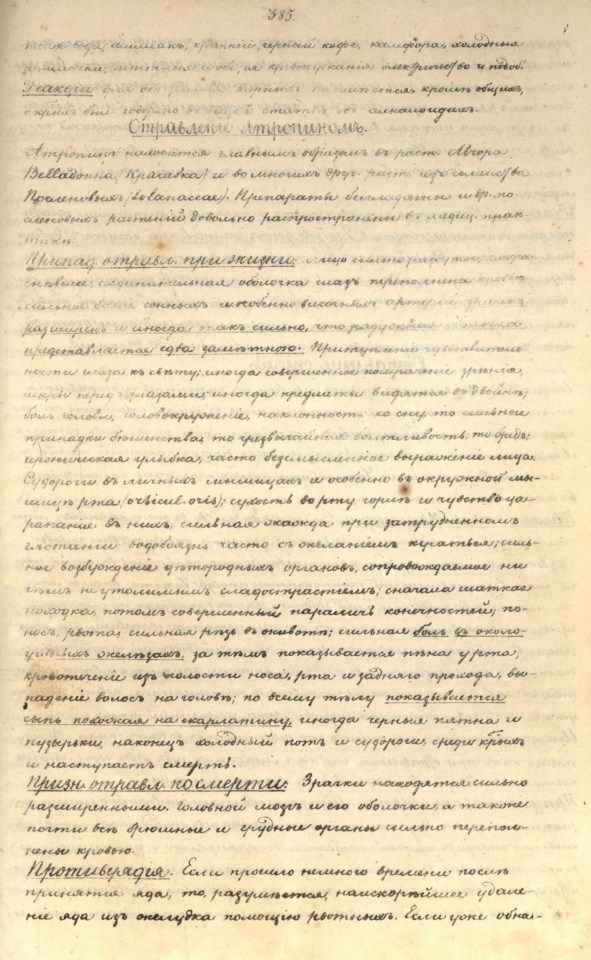 385.
вода, крѣпкій черный кофе, камфора, холодныя
кровопусканія электричество и подоб.
Реакціи кромѣ общихъ,
о коихъ было говорено въ статьѣ объ алкалоидахъ.
Отравленіе Атропиномъ.
Атропинъ находится главнымъ образомъ въ раст. Atropa
Belladonna (красавка) и во многихъ друг. раст. изъ семейства
Пасленовыхъ (Solanaceae). Препараты белладонны и др. па-
сленовыхъ растеній довольно распространены въ медиц. прак-
тикѣ.
Припад. отравл. при жизни: лицо сильно
соединительная оболочка глазъ переполнена кровью
сильное сонныхъ и особенно височныхъ артерій
расширенъ и иногда такъ сильно, что радужная оболочка
представляется едва замѣтною. Притупленіе чувствитель
ности глаза къ свѣту; иногда совершенное помраченіе зрѣнія,
искры передъ глазами; иногда предметы видятся въ двойнѣ;
боль головы, головокруженіе, наклонность ко сну, то сильные
припадки бѣшенства, то чрезвычайная болтливость, то бредъ;
ироническая улыбка, часто безсмысленное выраженіе лица.
Судороги въ личныхъ мышцахъ и особенно въ окружной мы-
шцѣ рта сухость во рту горлѣ и чувство ца-
рапанія въ нихъ, сильная жажда при затрудненномъ
глотаніи водобоязнь часто съ желаніемъ кусаться; силь-
ное возбужденіе дѣтородныхъ органовъ, сопровождаемое ни
чѣмъ неутолимымъ сладострастіемъ; сначала шаткая
походка, потомъ совершенный параличъ конечностей; по-
носъ, рвота, сильная рѣзь въ животѣ; сильная боль въ около-
ушныхъ железахъ, за тѣмъ показывается пѣна у рта,
кровотеченіе изъ полости носа, рта и задняго прохода, вы-
паденіе волосъ на головѣ; по всему тѣлу показывается
сыпь похожая на скарлатину, иногда черныя пятна и
пузырьки, наконецъ холодный потъ и судороги, среди коихъ
и наступаетъ смерть.
Призн. отравл. по смерти: Зрачки находятся сильно
расширенными. Головной мозгъ и его оболочки, а также
почти всѣ брюшные и грудные органы сильно перепол-
нены кровью.
Противуядія. Если прошло немного времени послѣ
принятія яда, то, разумѣется, наискорѣйшее удале-
ніе яда изъ желудка помощію рвотныхъ. Если уже обна-